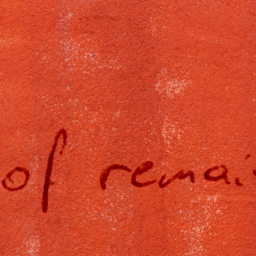 of remai